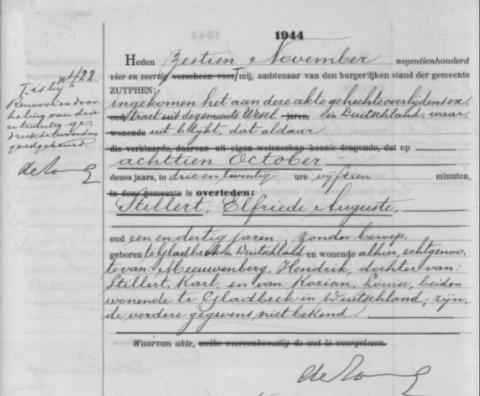 1944
Heden Zestien November negentienhonderd
vier en veertig verscheen voor mij, ambtenaar van den burgerlijken stand der gemeente
ZUTPHEN:
ingekomen het aan deze akte gehechte overlijdensex-
tract uit de gemeente Wesel jaren, in Duitschland, waar-
wonende uit blijkt, dat aldaar
die verklaarde, daarvan uit eigen wetenschap kennis dragende, dat op
achttien October
dezes jaars, te drie en twintig ure vijftien minuten,
in deze gemeente is overleden:
Stillert, Elfriede Auguste,
oud een en dertig jaren, zonder beroep,
geboren te Gladbeck in Duitschland en wonende alhier, echtgenoo-
te van Meeuwenberg, Hendrik, dochter van:
Stillert, Karl, en van Kozian, Louise, beiden
wonende te Gladbeck in Duitschland, zijn-
de verdere gegevens niet bekend
Waarvan akte, welke overeenkomstig de wet is voorgelezen.
No 422
T. is bij
Renvooi en door-
haling van drie
en twintig ge-
drukte woorden
goedgekeurd.